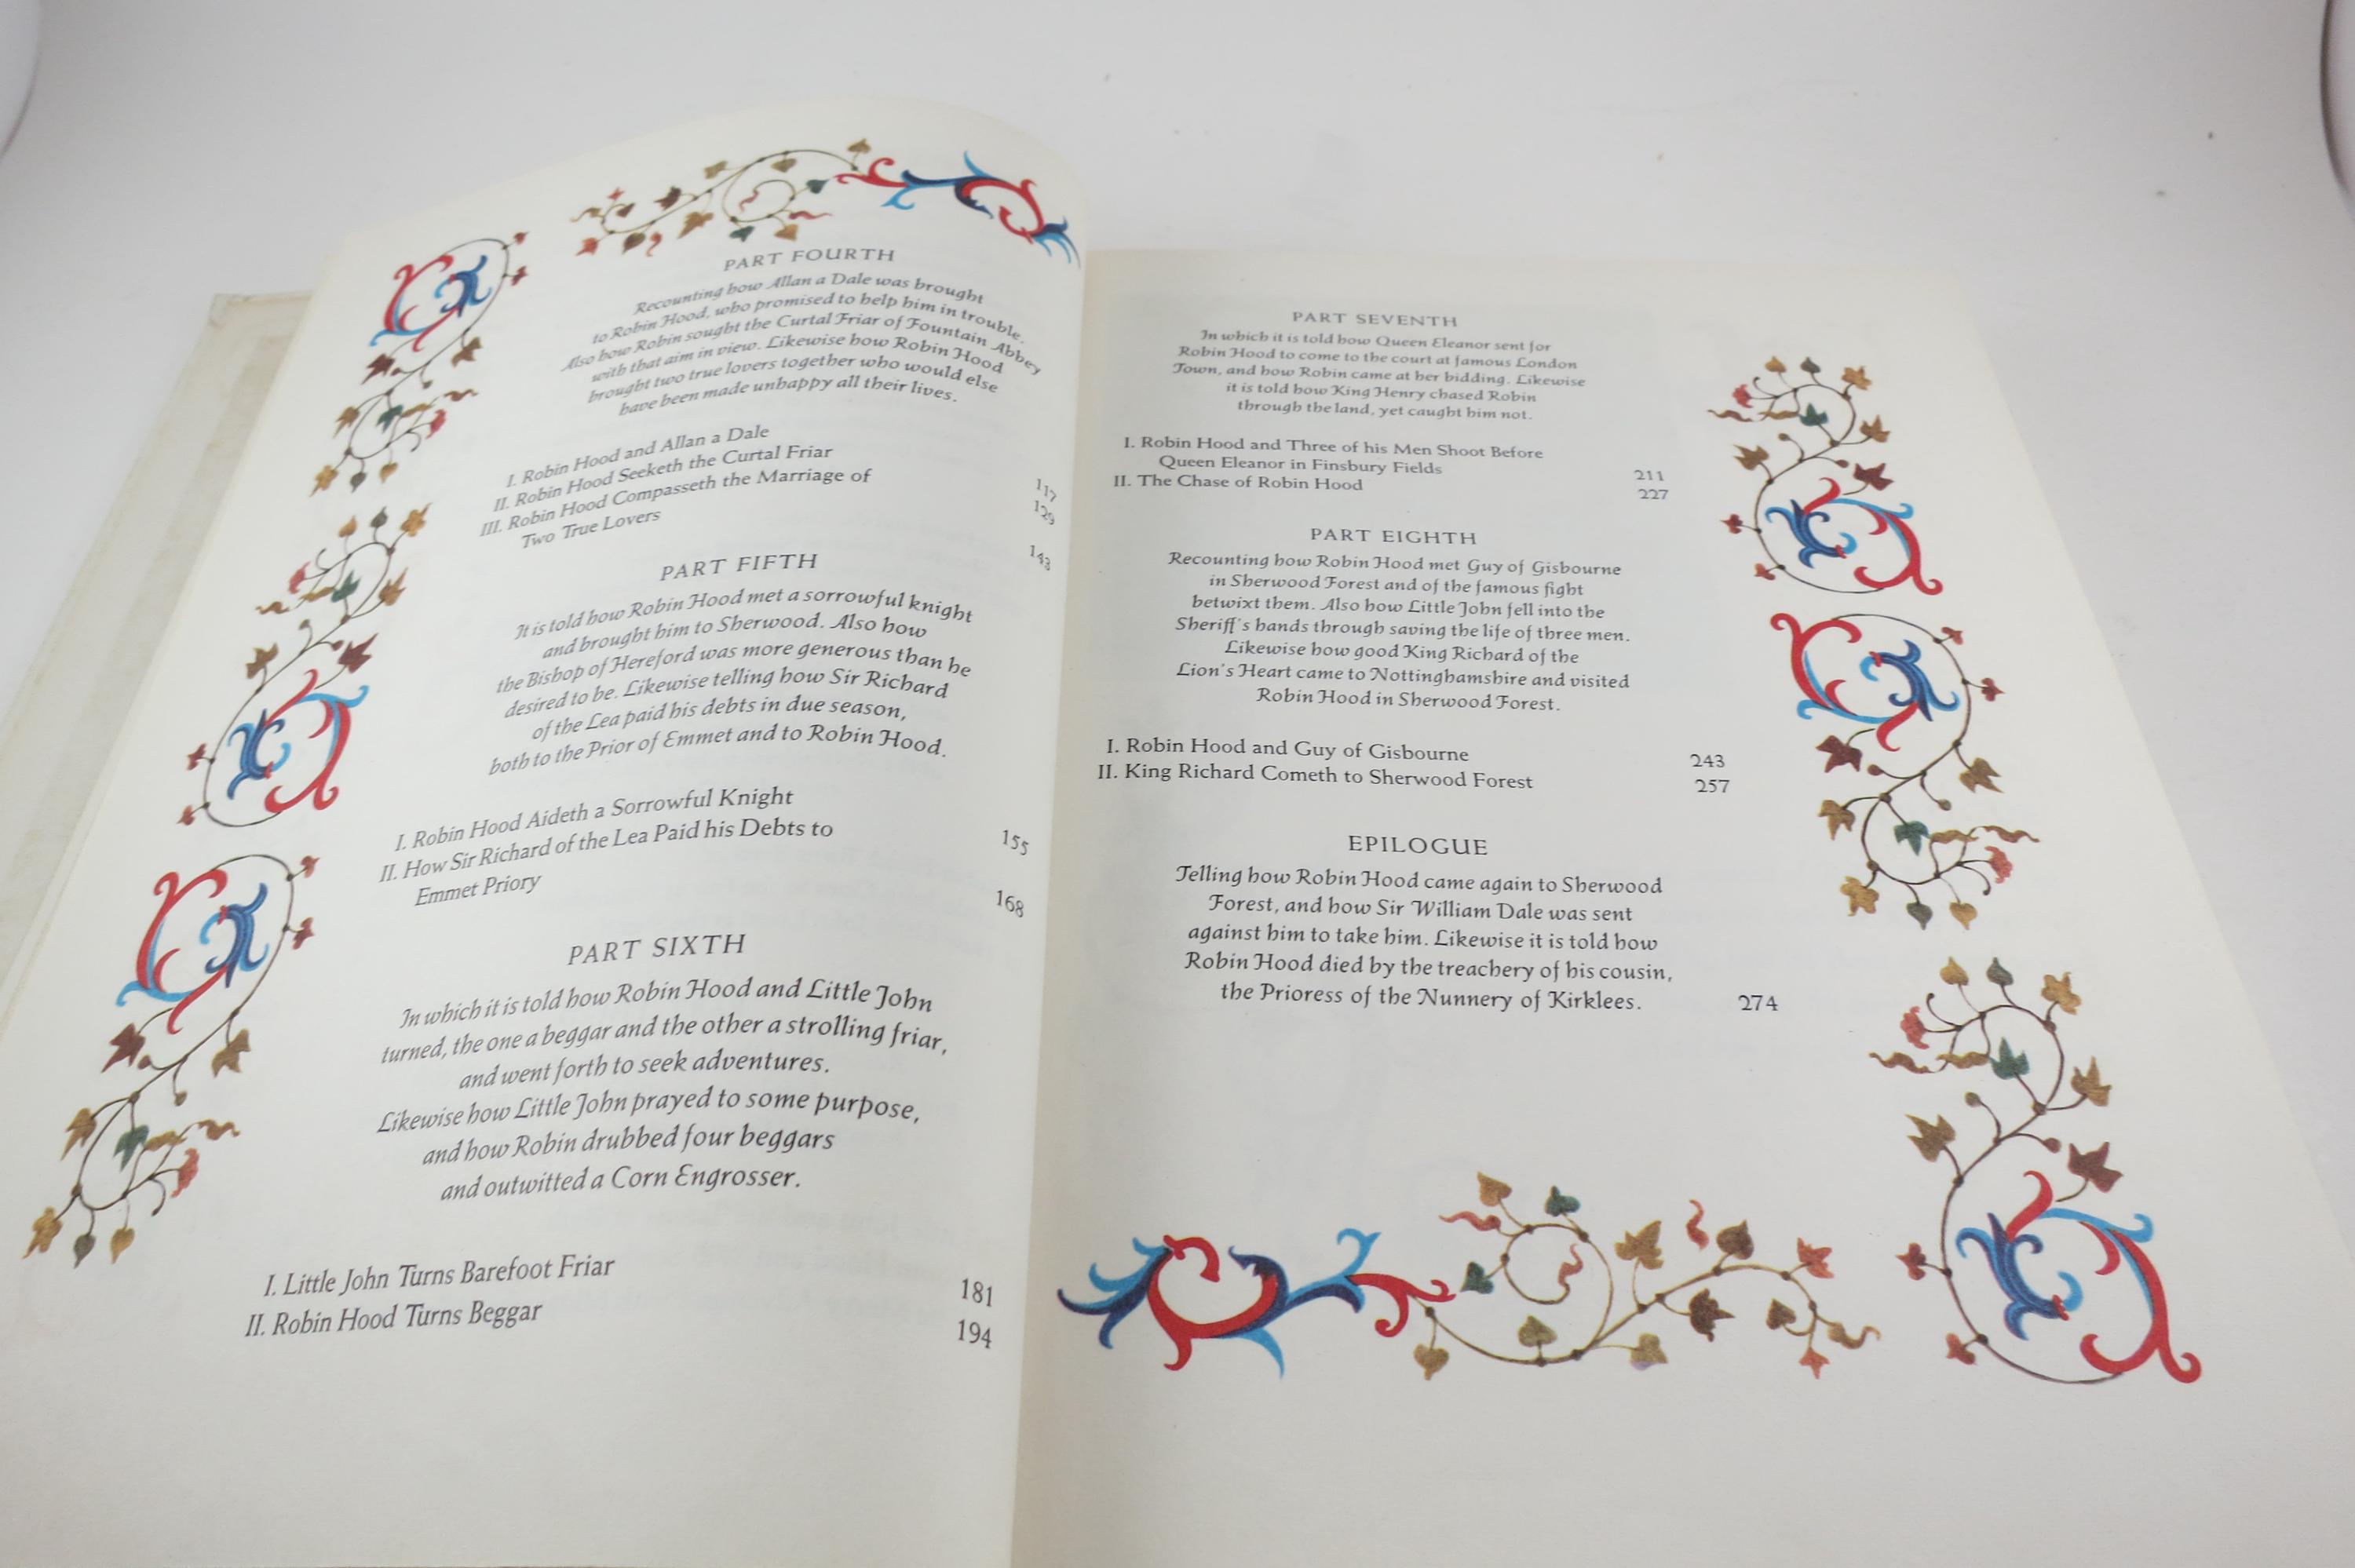 PART FOURTH
Recounting how Allan a Dale was brought
to Robin Hood, who promised to help him in trouble.
Also how Robin sought the Curtal Friar of Fountain Abbey
with that aim in view. Likewise how Robin Hood
brought two true lovers together who would else
have been made unhappy all their lives.
I. Robin Hood and Allan a Dale 117
II. Robin Hood Seeketh the Curtal Friar 129
III. Robin Hood Compasseth the Marriage of
Two True Lovers 143
PART FIFTH
It is told how Robin Hood met a sorrowful knight
and brought him to Sherwood. Also how
the Bishop of Hereford was more generous than he
desired to be. Likewise telling how Sir Richard
of the Lea paid his debts in due season,
both to the Prior of Emmet and to Robin Hood.
I. Robin Hood Aideth a Sorrowful Knight 155
II. How Sir Richard of the Lea Paid his Debts to
Emmet Priory 168
PART SIXTH
In which it is told how Robin Hood and Little John
turned, the one a beggar and the other a strolling friar,
and went forth to seek adventures.
Likewise how Little John prayed to some purpose,
and how Robin drubbed four beggars
and outwitted a Corn Engrosser.
I. Little John Turns Barefoot Friar 181
II. Robin Hood Turns Beggar 194
PART SEVENTH
In which it is told how Queen Eleanor sent for
Robin Hood to come to the court at famous London
Town, and how Robin came at her bidding. Likewise
it is told how King Henry chased Robin
through the land, yet caught him not.
I. Robin Hood and Three of his Men Shoot Before
Queen Eleanor in Finsbury Fields 211
II. The Chase of Robin Hood 227
PART EIGHTH
Recounting how Robin Hood met Guy of Gisbourne
in Sherwood Forest and of the famous fight
betwixt them. Also how Little John fell into the
Sheriff's hands through saving the life of three men.
Likewise how good King Richard of the
Lion's Heart came to Nottinghamshire and visited
Robin Hood in Sherwood Forest.
I. Robin Hood and Guy of Gisbourne 243
II. King Richard Cometh to Sherwood Forest 257
EPILOGUE
Telling how Robin Hood came again to Sherwood
Forest, and how Sir William Dale was sent
against him to take him. Likewise it is told how
Robin Hood died by the treachery of his cousin,
the Prioress of the Nunnery of Kirklees. 274